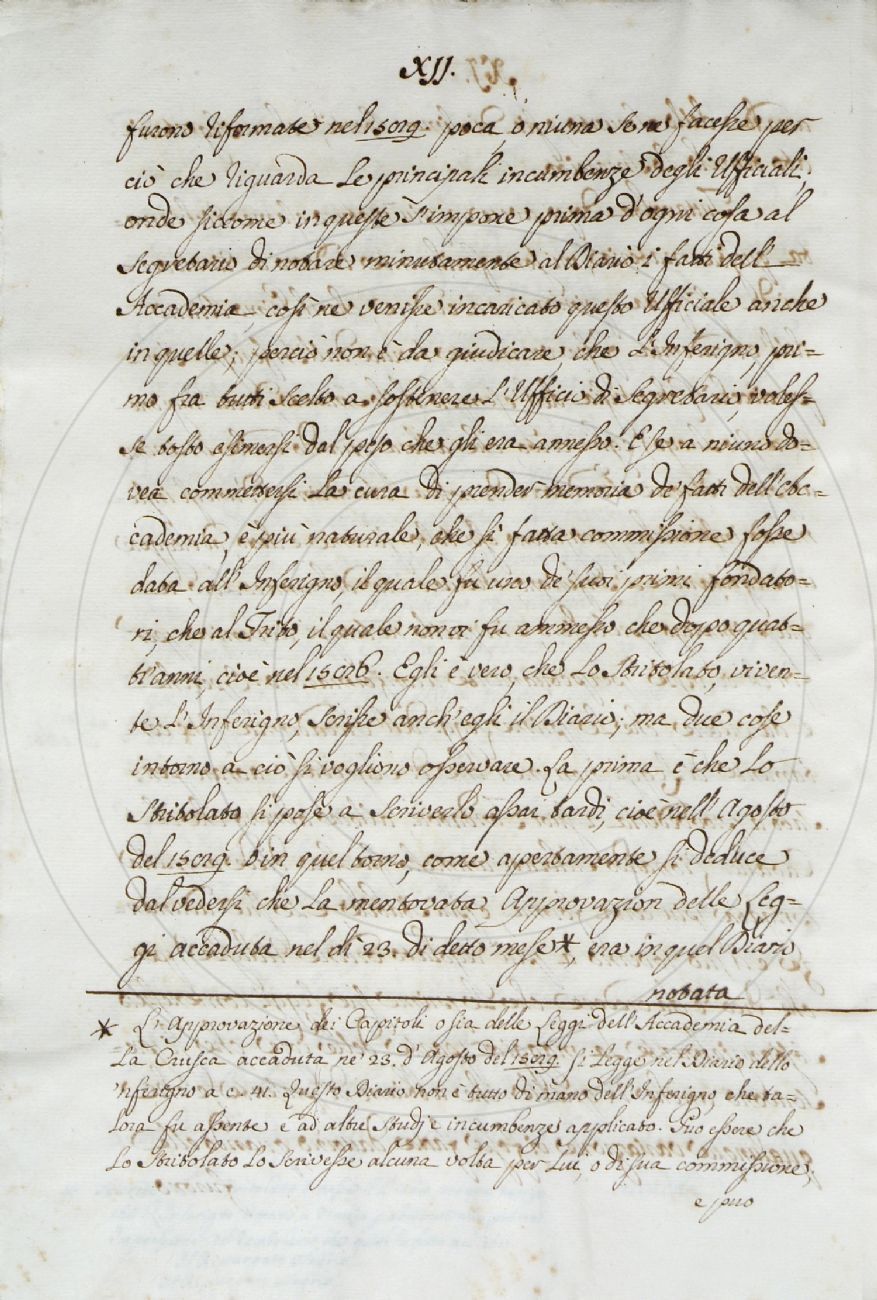 XII.
furono riformate nel 1589. poca, o niuna se ne facesse per
ciò che riguarda le principali incumbenze degli Ufficiali,
onde siccome in queste s'impone prima d'ogni cosa al
Segretario di notare minutamente al Diario i fatti dell'
Accademia, così ne venisse incaricato questo Ufficiale anche
in quelle; perciò non è da giudicare, che l'Inferigno, pri=
mo fra tutti scelto a sostenere l'Ufficio di Segretario, voles=
se tosto esimersi dal peso che gli era annesso. E se a niuno do=
vea commettersi la cura di prender memoria de' fatti dell'Ac=
cademia, è più naturale, che sì fatta commissione fosse
data all'Inferigno, il quale fu uno de' suoi primi fondato=
ri, che al Trito, il quale non vi fu ammesso che dopo quat=
tr'anni, cioè nel 1586. Egli è vero, che lo Stritolato, viven=
te l'Inferigno, scrisse anch'egli il Diario; ma due cose
intorno a ciò si vogliono osservare. La prima è che lo
Stritolato si pose a scriverlo assai tardi, cioè nell'Agosto
del 1589. o in quel torno, come apertamente si deduce
dal vedersi che la mentovata Approvazion delle Leg=
gi accaduta nel dì 23. di detto mese*, era in quel Diario
notata
* L'Approvazione dei Capitoli o sia delle Leggi dell'Accademia del=
la Crusca accaduta ne' 23. d'Agosto del 1589. si legge nel Diario dello
'nferigno a c. 41. Questo Diario non è tutto di mano dell'Inferigno, che ta=
lora fu assente e ad altri Studj e incumbenze applicato. Può essere che
lo Stritolato lo scrivesse alcuna volta per lui, o di sua commissione,
e può